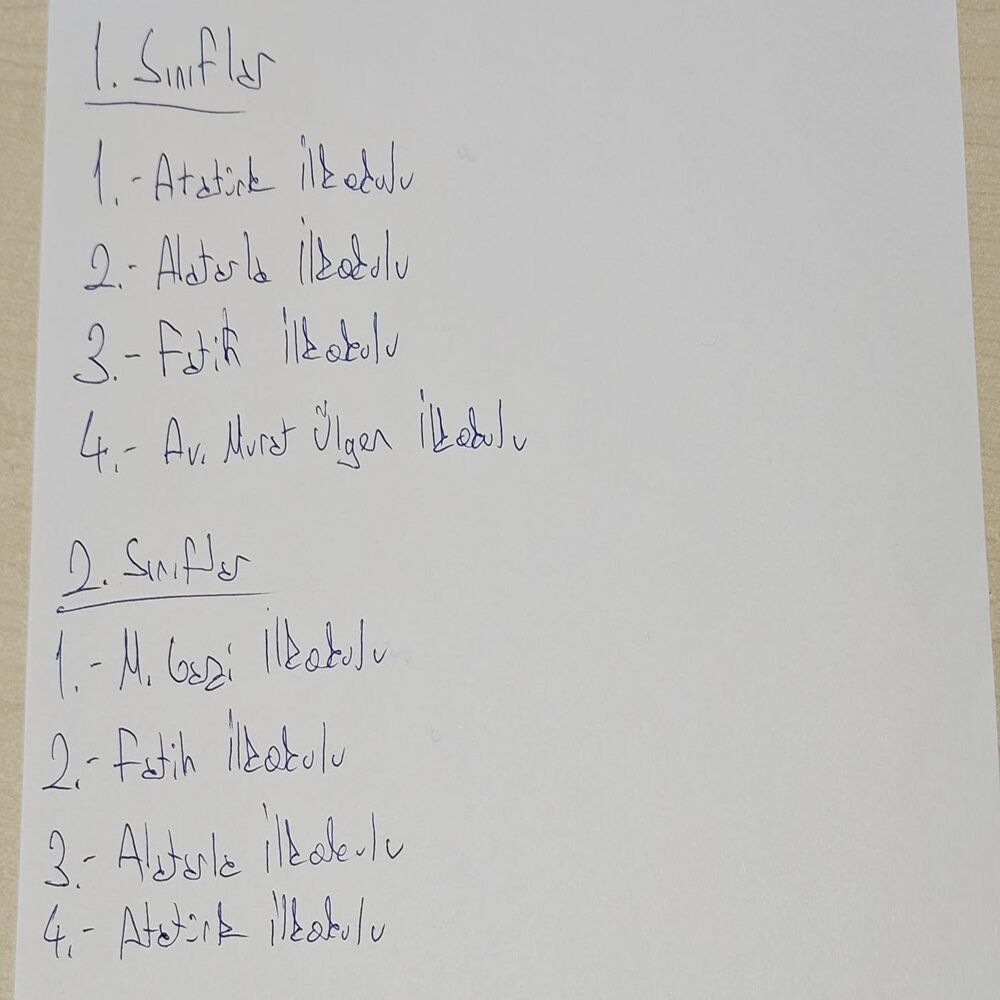 1. Sınıflar
1.- Atatürk İlkokulu
2.- Alatarla İlkokulu
3.- Fatih İlkokulu
4.- Av. Murat Ülgen İlkokulu
2. Sınıflar
1.- M. Gazi İlkokulu
2.- Fatih İlkokulu
3.- Alatarla İlkokulu
4.- Atatürk İlkokulu